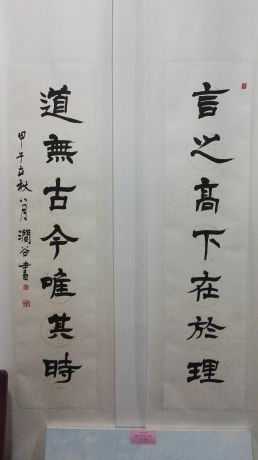 言之高下在於理
道無古今唯其時
甲午立秋 澗谷書